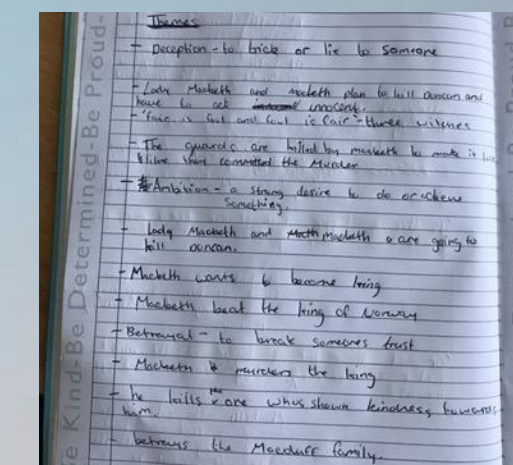 Themes
- Deception - to trick or lie to someone
- Lady Macbeth and macbeth plan to kill duncan and
have to act innocent.
- "fair is foul and foul is fair" - three witches
- The guards are killed by macbeth to make it
like they committed the Murder
- Ambition - a strong desire to do or acheive
something.
- Lady Macbeth and macbeth are going to
kill duncan.
- Macbeth wants to become king
- Macbeth beat the king of Norway
- Betrayal - to break someones trust
- Macbeth murders the king
- he kills the one whos shown kindness towards
him.
- betrays the Macduff family.
Kind-Be Determined-Be Proud-